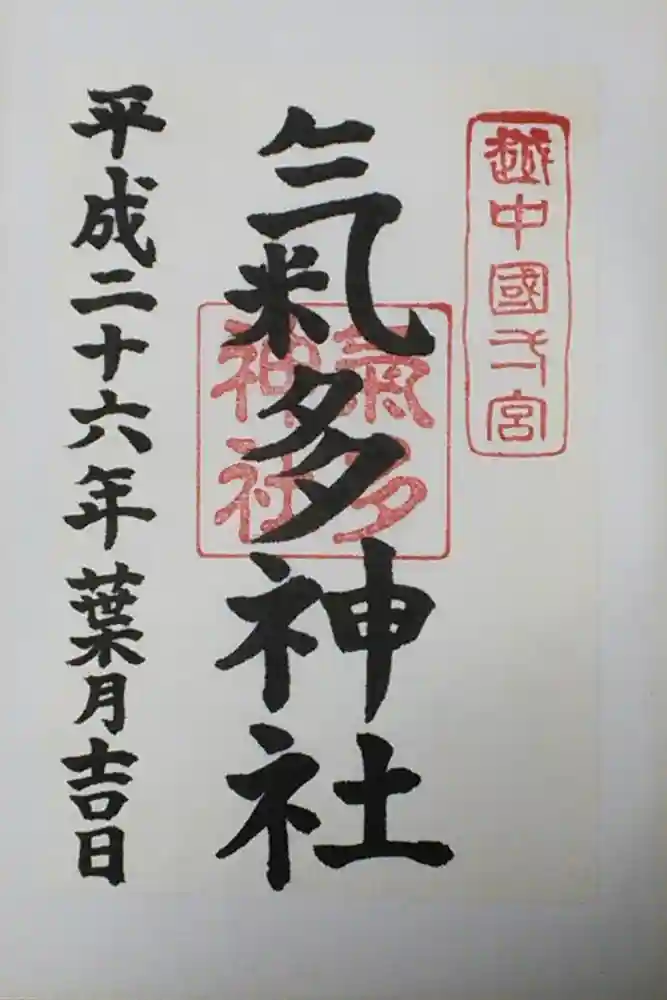 越中國一宮
氣多神社
氣多
神社
平成二十六年葉月吉日